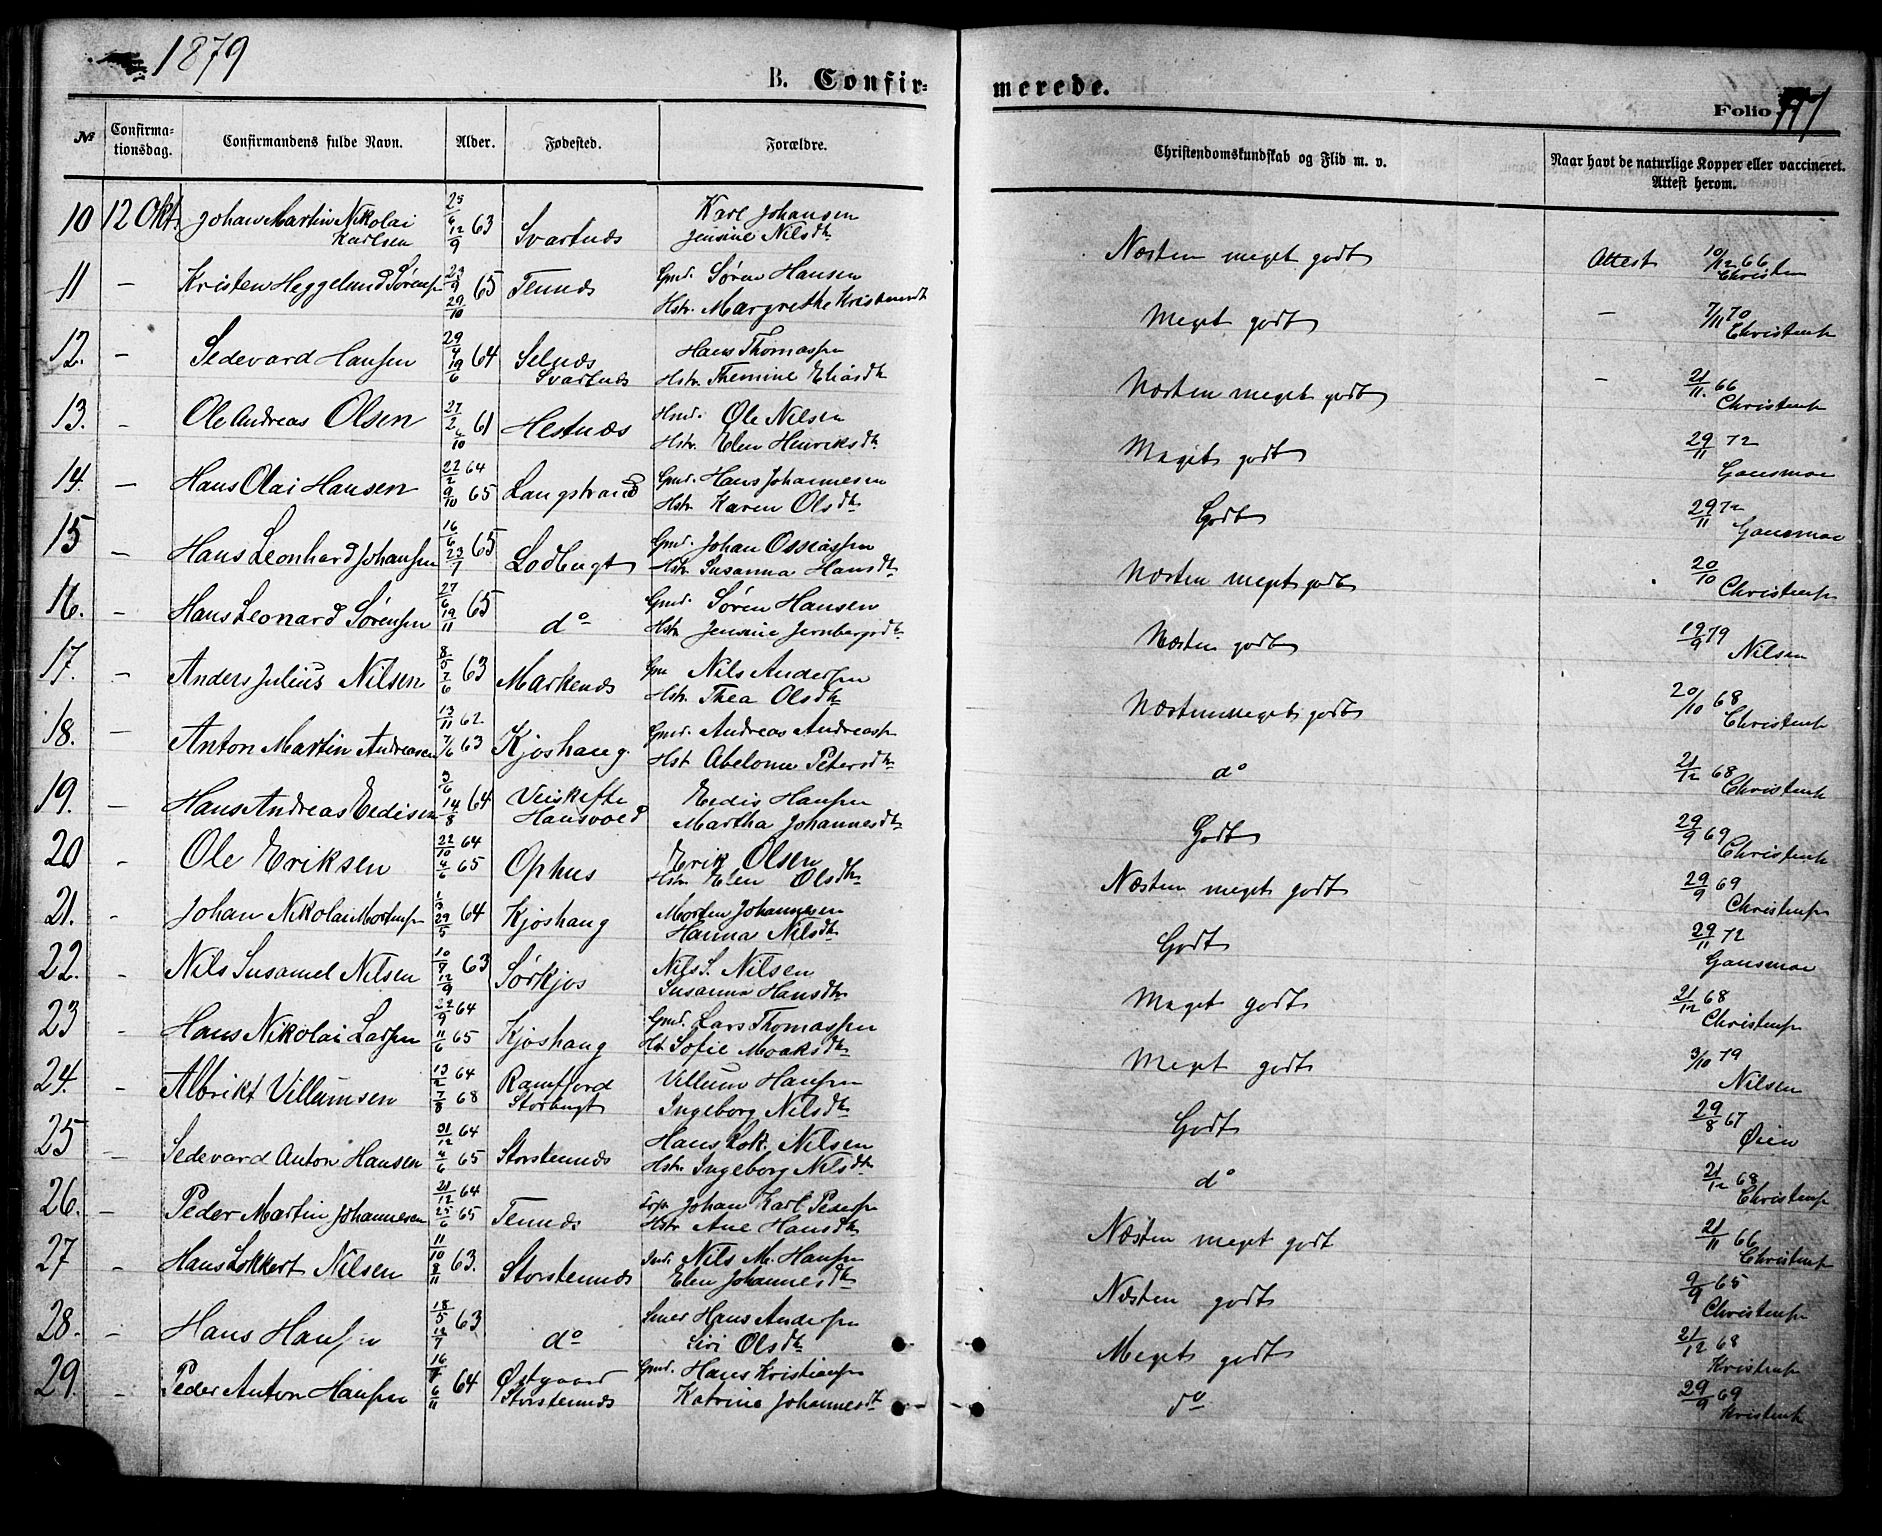 1879
B. Confir-
merede.
Folio 177
№ Confirma-tionsdag. Confirmandens fulde Navn. Alder. Fødested. Forældre. Christendomskundskab og Flid m. v. Naar havt de naturlige Kopper eller vaccineret. Attest herom.
10 12 Okt. Johan Martin Nikolai 25/6 63 Svartnæs Karl Johansen Næsten meget godt Attest 10/12 66
Karlsen 12/9 Jensine Nilsdtr Christen
11 — Kristen Heggelund Sørensen 65 Tennæs Gmd. Søren Hansen Meget godt — 7/11 70
29/10 Hstr. Margrethe Kristensdt Christensen
12. — Sedevard Hansen 64 Selnæs Hans Thomassen Næsten meget godt — 21/11 66
19/6 Svartnæs Hstr. Themine Eliasdtr Christensen
13. — Ole Andreas Olsen 27/2 61 Hestnæs Hmd. Ole Nilsen Meget godt 29/11 72
Hstr. Elen Henriksdtr Gausmoe
14. — Hans Olai Hansen 22/2 64 Langstrand Gmd. Hans Johannesen Godt 29/11 72
9/10 65 Hstr. Karen Olsdtr Gausmoe
15 — Hans Leonhard Johansen 16/6 65 Lodbugt Gmd. Johan Ossiassen Næsten meget godt 20/10
23/7 Hstr Susanna Hansdtr Christensen
16. — Hans Leonard Sørensen 27/6 65 do Gmd. Søren Hansen Næsten godt 19/9 79
19/11 Hstr Jensine Jernbergsdtr Nilsen
17. — Anders Julius Nilsen 8/5 63 Markenæs Gm Nils Andersen Næsten meget godt 20/10 68
7/6 Hstr. Thea Olsdtr Christensen
18. — Anton Martin Andreasen 13/11 62 Kjoshaug. Gmd. Andreas Andreassen do 21/12 68
7/6 63 Hst Abelone Petersdtr Christensen
19. — Hans Andreas Eedisen 64 Veiskefte Eedis Hansen Godt 29/9 69
14/8 Hansvold Martha Johannesdtr Christensen
20 — Ole Eriksen 22/10 64 Ophus Erik Olsen Næsten meget godt 29/9 69
4/6 65 Hstr Elen Olsdtr Christensen
21. — Johan Nikolai Mortensen 1/3 64 Kjoshaug Morten Johannesen Godt 29/11 72
29/5 Hanna Nilsdtr Gausmoe
22. — Nils Susamel Nilsen 63 Sørkjos Nils S. Nilsen Meget godt 21/12 68
12/9 Susanna Hansdtr Christensen
23 — Hans Nikolai Larsen 22/9 64 Kjoshaug Gmd. Lars Thomassen Meget godt 3/10 79
11/6 65 Hst Sofie Moaksdtr Nilsen
24. — Albrikt Villumsen 13/2 64 Ramfjord Villum Hansen Godt 29/8 67
7/8 68 Storbugt Ingeborg Nilsdtr Øien
25 — Sedevard Anton Hansen 31/12 64 Storstennæs Hans Lok. Nilsen do 21/12 68
4/6 65 Hstr. Ingeborg Nilsdtr Christensen
26. — Peder Martin Johannesen 21/12 64 Tennæs Johan Karl Pedersen Næsten meget godt 21/11 66
25/6 65 Hstr Ane Hansdtr Christensen
27 — Hans Lokkert Nilsen 63. Storstennæs Ind. Nils M. Hansen Næsten godt 9/9 65
8/11 Elen Johannesdtr Christensen
28. — Hans Hansen 18/5 63 do Hans Andersen Meget godt 21/12 68
12/7 Siri Olsdtr Kristensen
29. — Peder Anton Hansen 64 Østgaard Gmd. Hans Kristiansen do 29/9 69
6/11 Storstennæs Katrine Johannesdt Kristensen